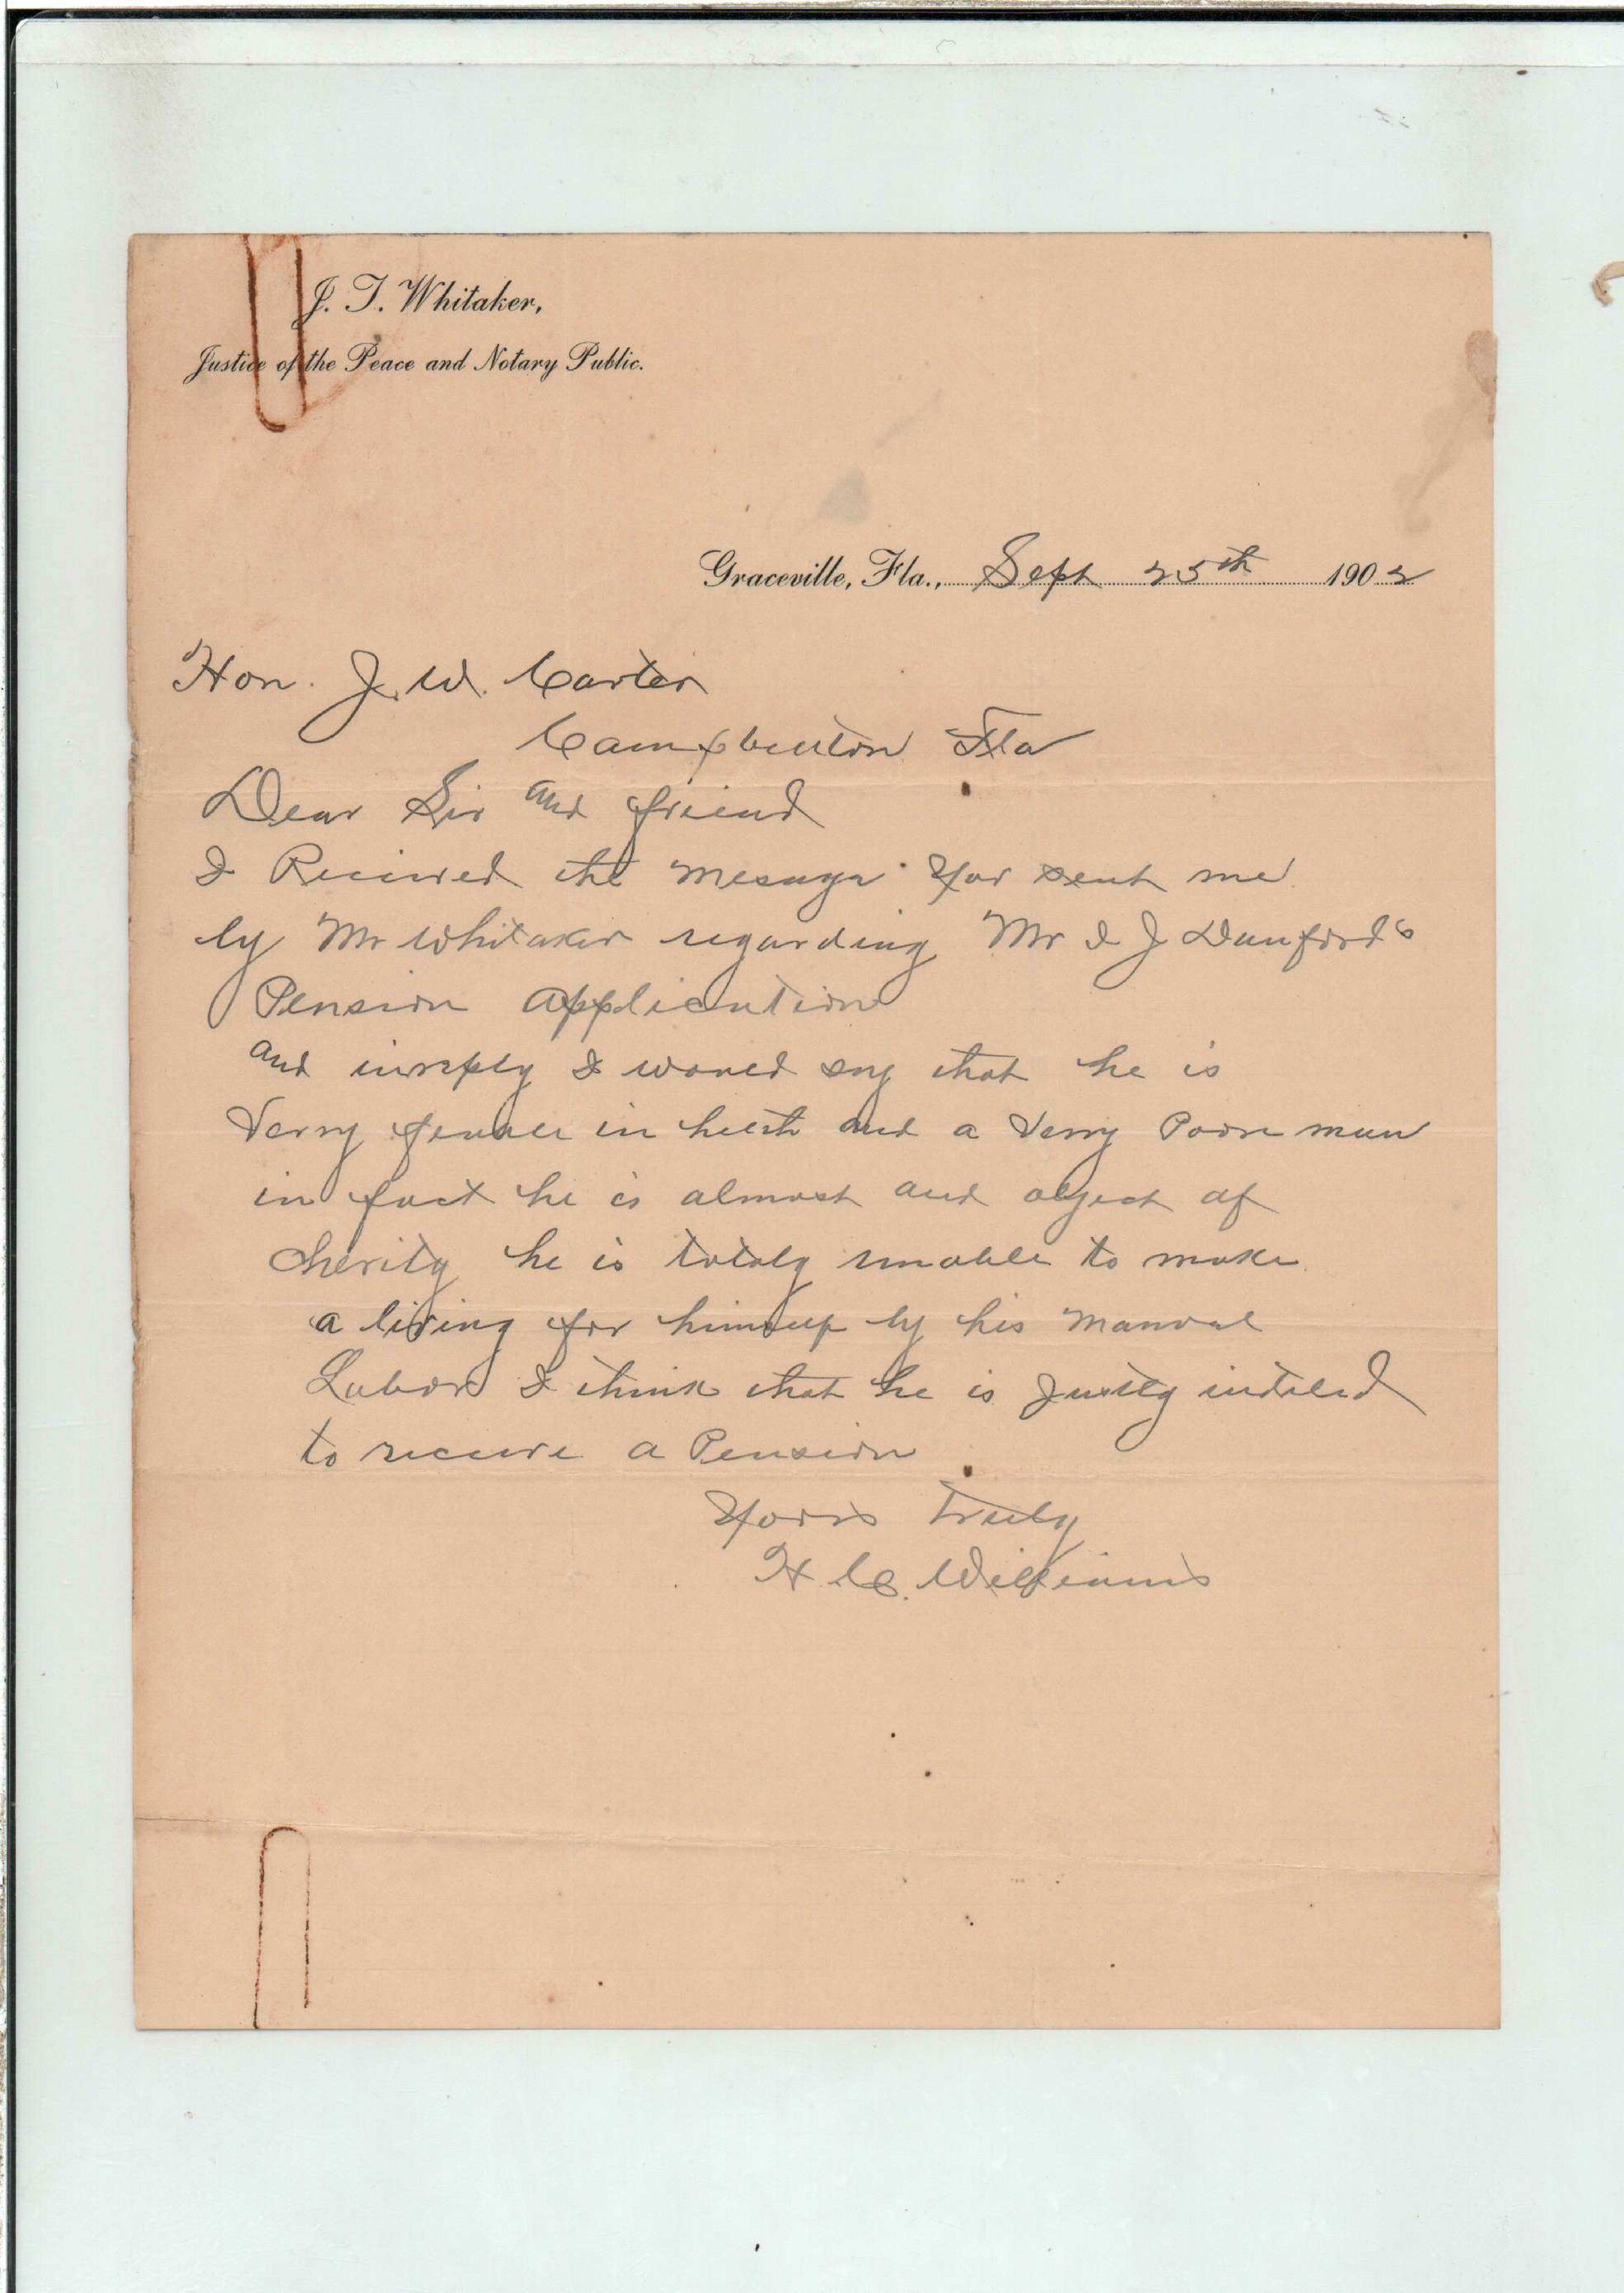 J. T. Whitaker,
Justice of the Peace and Notary Public.
Graceville, Fla., Sept 25th 1902
Hon. J. W. Carter
Campbellton Fla
Dear Sir and friend
I Recived the mesage you sent me
by Mr Whitaker regarding Mr I J Danfords
Pension application
and in reply I would say that he is
Verry feable in helth and a Verry Poore man
in fact he is almost and object of
cherity he is totaly unable to make
a living for himself by his manual
Labor I think that he is Justly intiled
to receive a Pension
Yours Truly
H. C. Williams